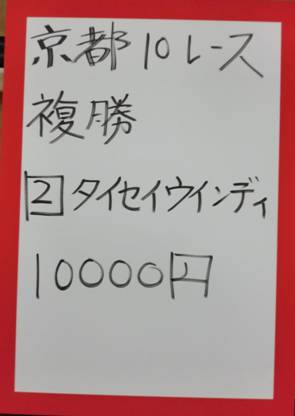 京都10レース
複勝
2 タイセイウインディ
10000円